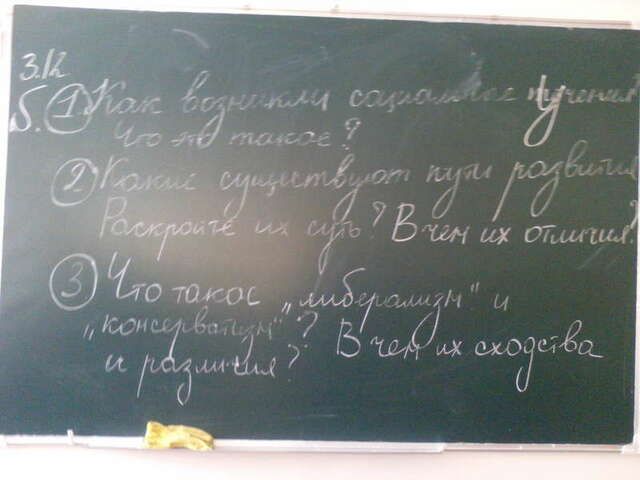 3.12
Б. 1. Как возникли социальные учения
Что это такое?
2 Какие существуют пути развития
Раскройте их суть? В чем их отличия?
3 Что такое „либерализм" и
„консерватизм"? В чем их сходства
и различия?